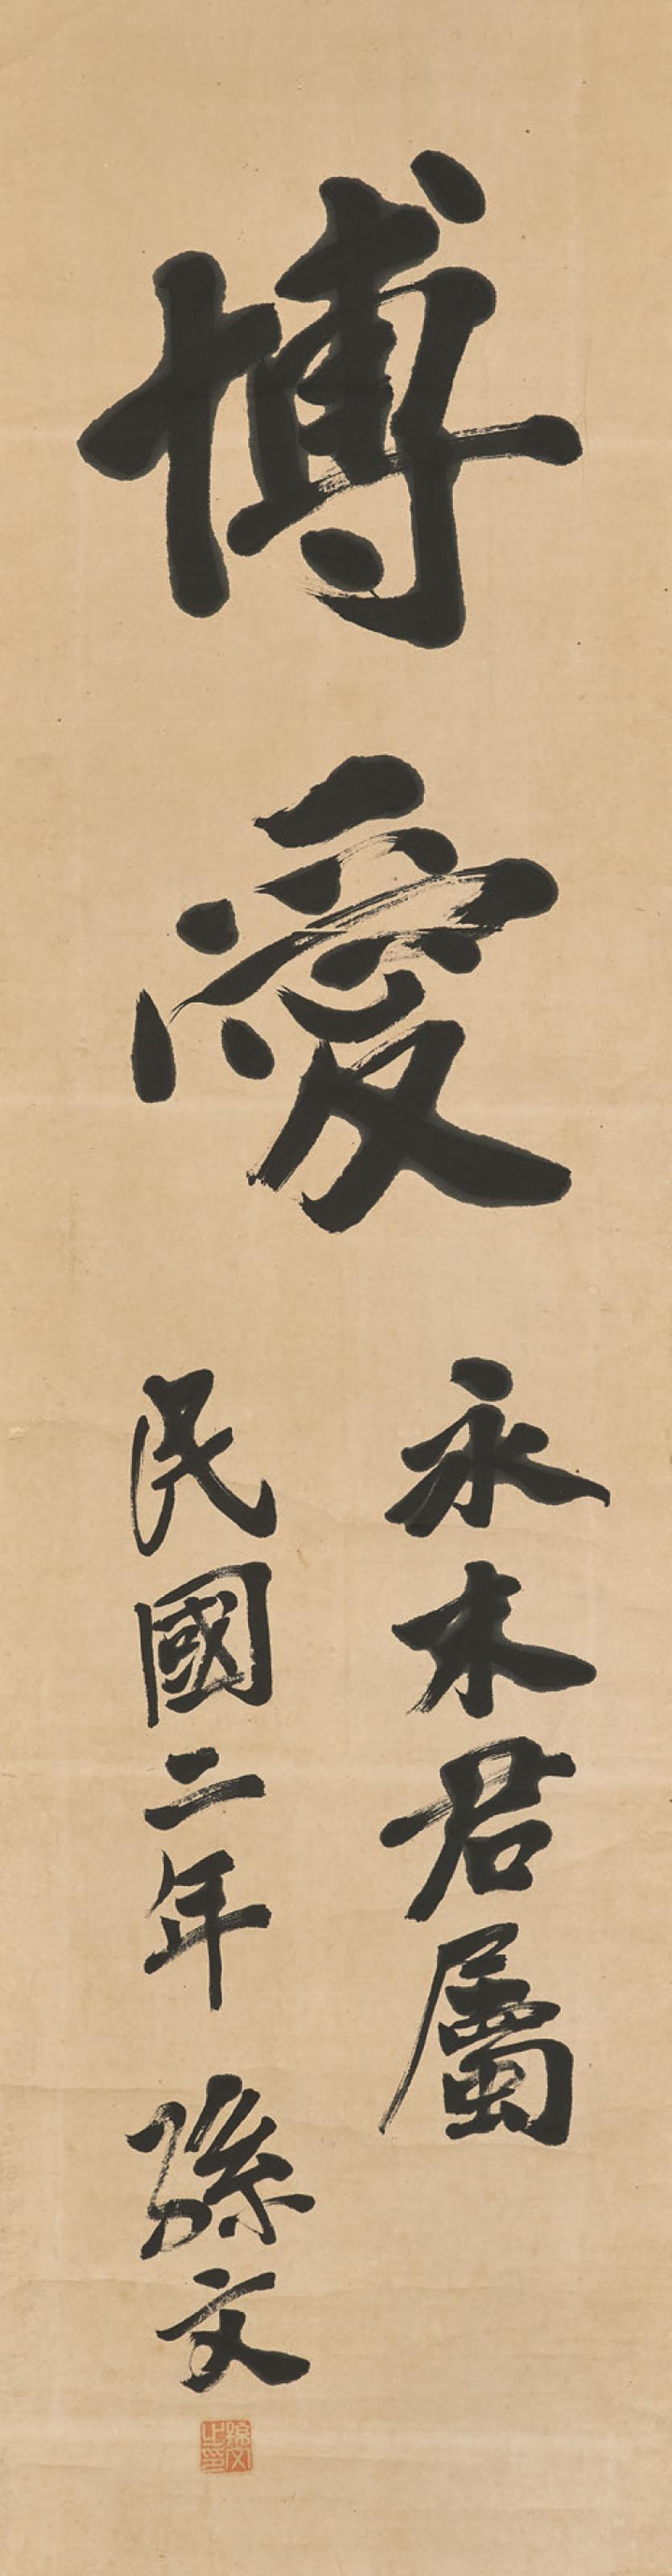 博愛
永木君屬
民國二年 孫文
孫文之印